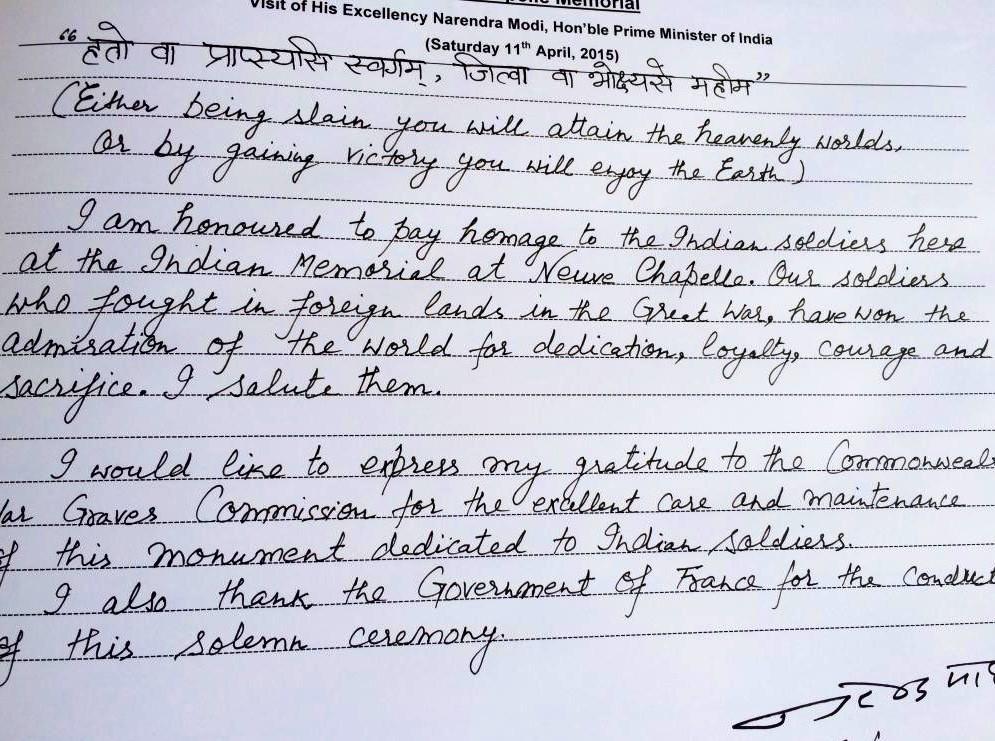 Memorial
Visit of His Excellency Narendra Modi, Hon'ble Prime Minister of India
(Saturday 11th April, 2015)
"हतो वा प्राप्स्यसि स्वर्गम्, जित्वा वा भोक्ष्यसे महीम"
(Either being slain you will attain the heavenly worlds,
Or by gaining victory you will enjoy the Earth)
I am honoured to pay homage to the Indian soldiers here
at the Indian Memorial at Neuve Chapelle. Our soldiers
who fought in foreign lands in the Great War, have won the
admiration of the world for dedication, loyalty, courage and
sacrifice. I salute them.
I would like to express my gratitude to the Commonweal
ar Graves Commission for the excellent care and maintenance
of this monument dedicated to Indian Soldiers.
I also thank the Government of France for the conduct
of this solemn ceremony.